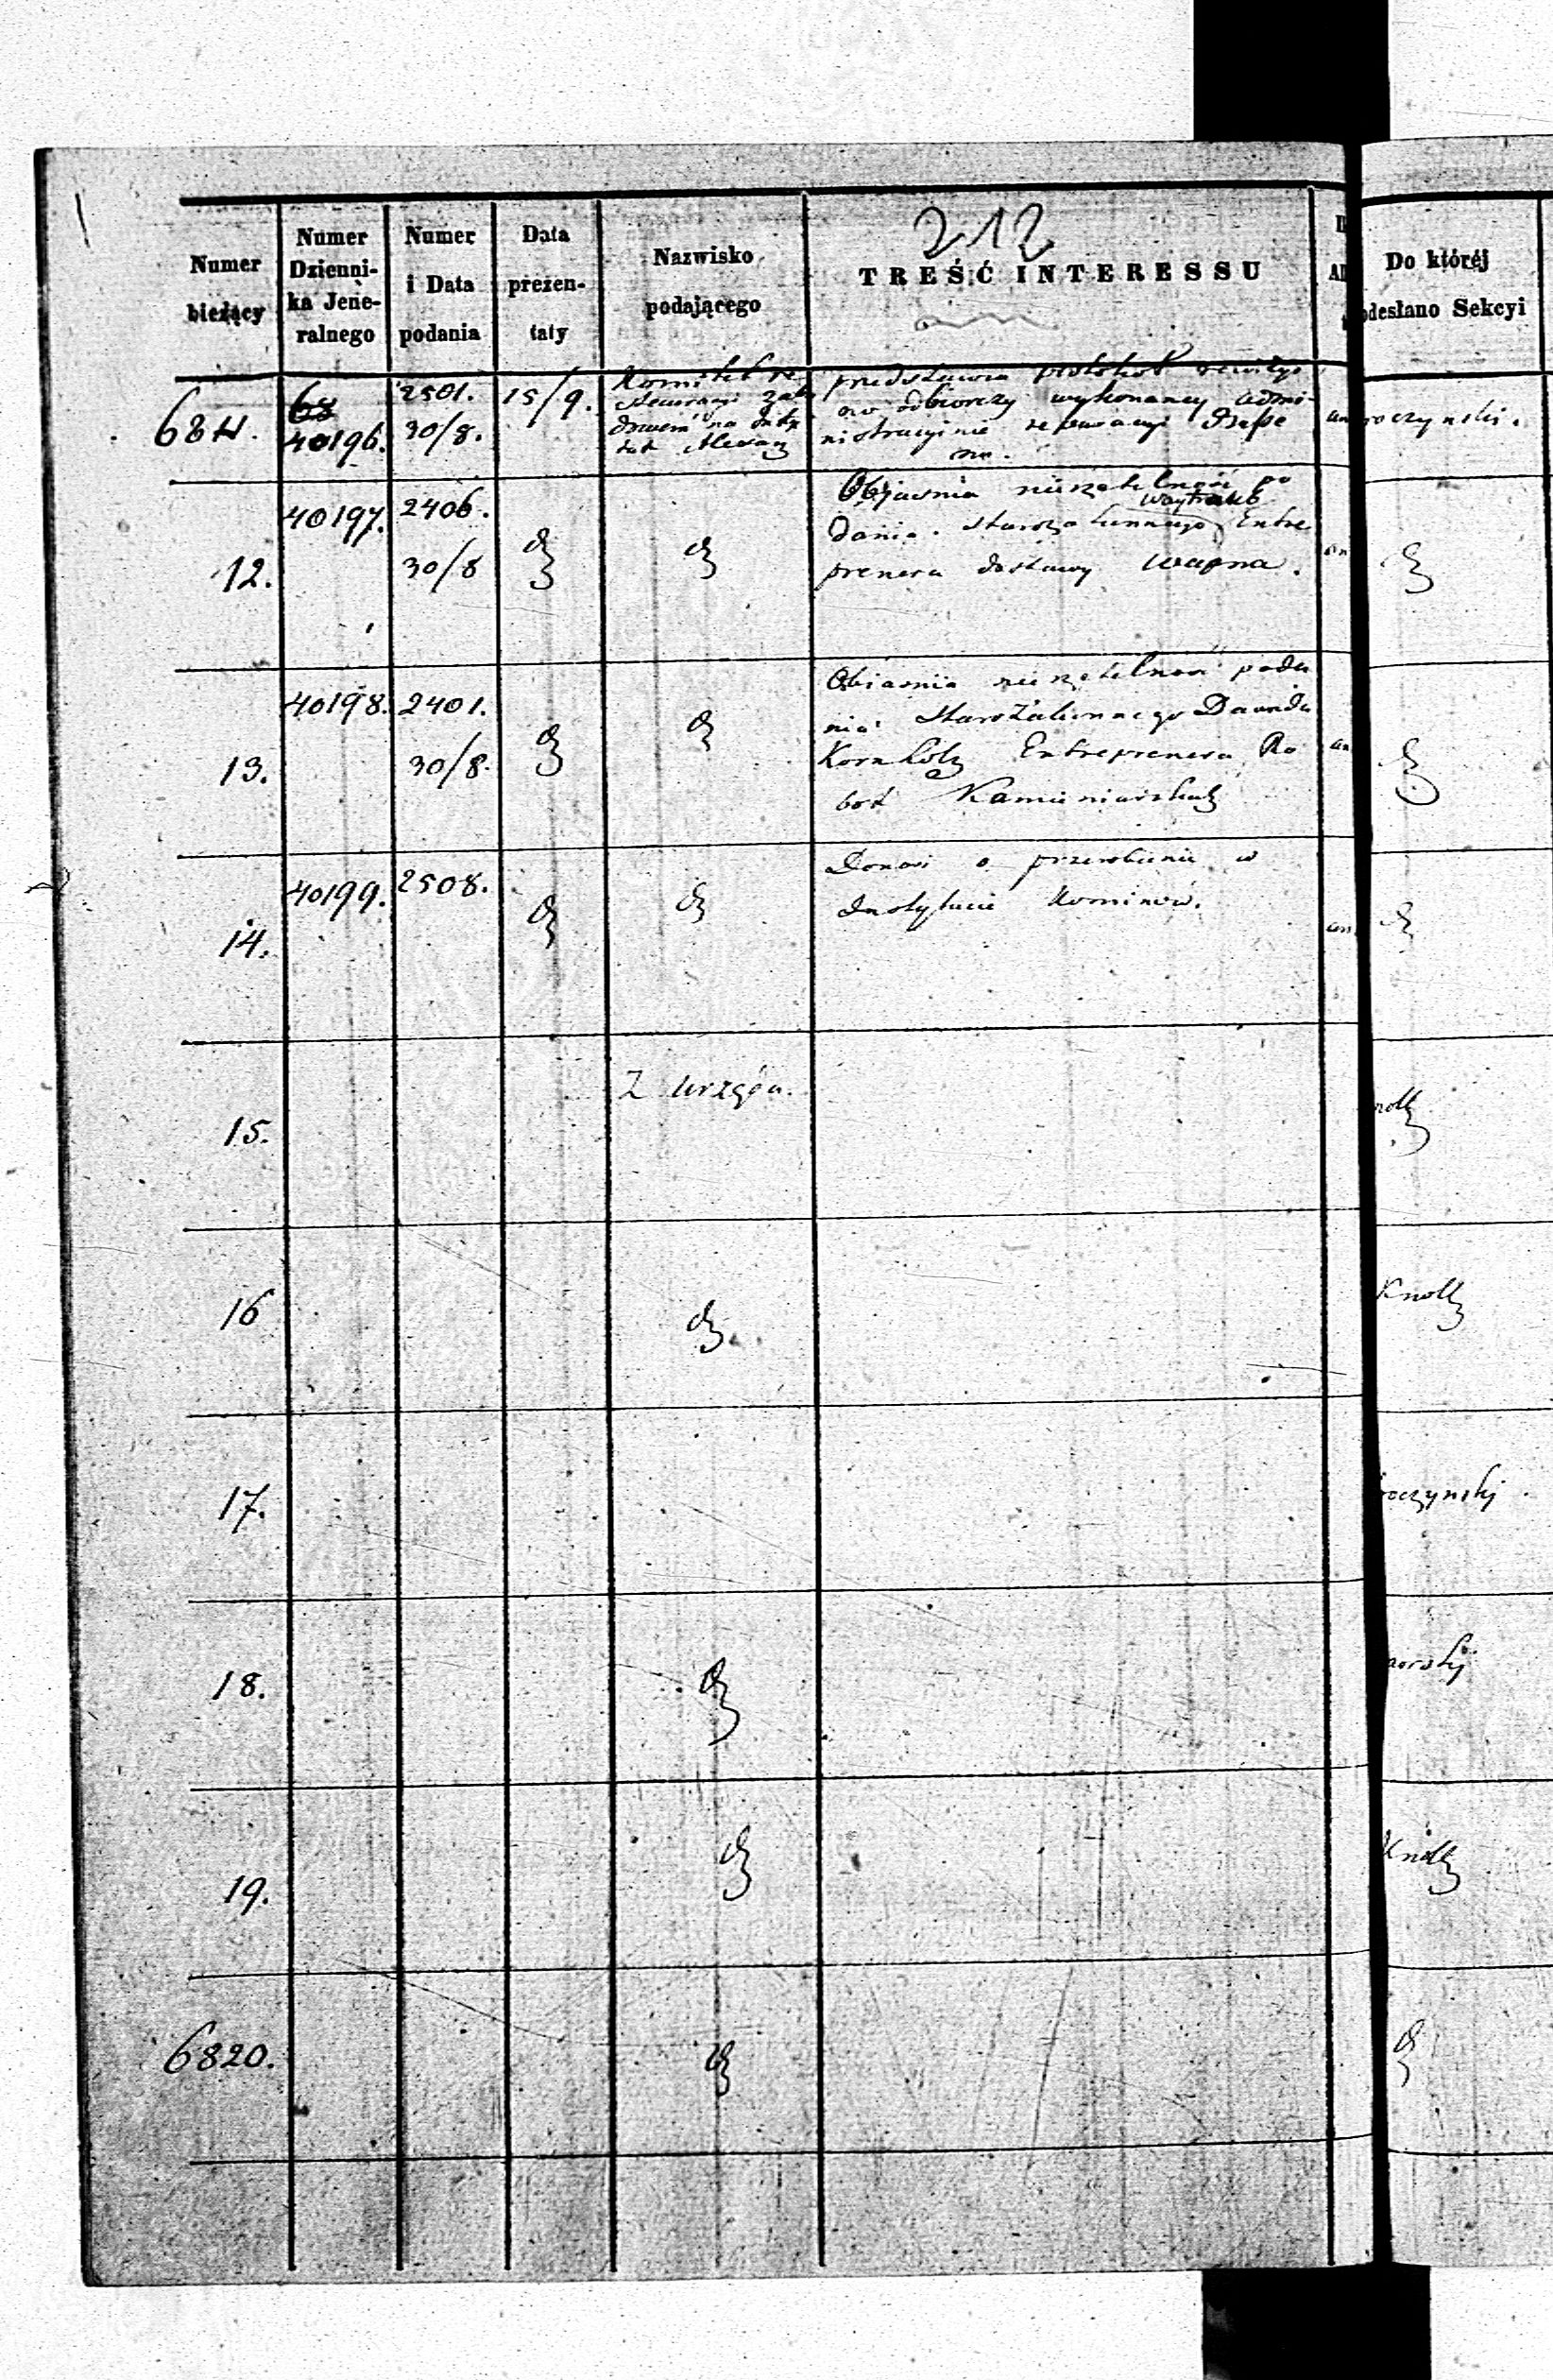 212
Numer bieżący
Numer Dzienni-ka Jene-ralnego
Numer i Data podania
Data prezen-taty
Nazwisko podającego
TREŚĆ INTERESSU
Do któréj
odesłano Sekcyi
6811.
68
40196.
2501.
30/8.
15/9.
Komitet re
przedstawia protokół rewizyj
no odbiorczy wykonanej admi-
nistracyjnie reparacyi
oczynski.
12.
40197.
2406.
30/8
Objasnia nierzetelność po
dania Starozakonnego Entre
prenera dostawy wapna.
13.
40198.
2401.
30/8.
Obiasnia nierzetelność poda
nia Starozakonnego Dawida
Kornholz Entreprenera Ro
bót Kamieniarskich
14.
40199.
2508.
Donosi o przerobieniu w
Instytucie Kominów.
15.
Z urzędu.
noll
16
Knoll
17.
oczynski
18.
19.
Knoll
6820.